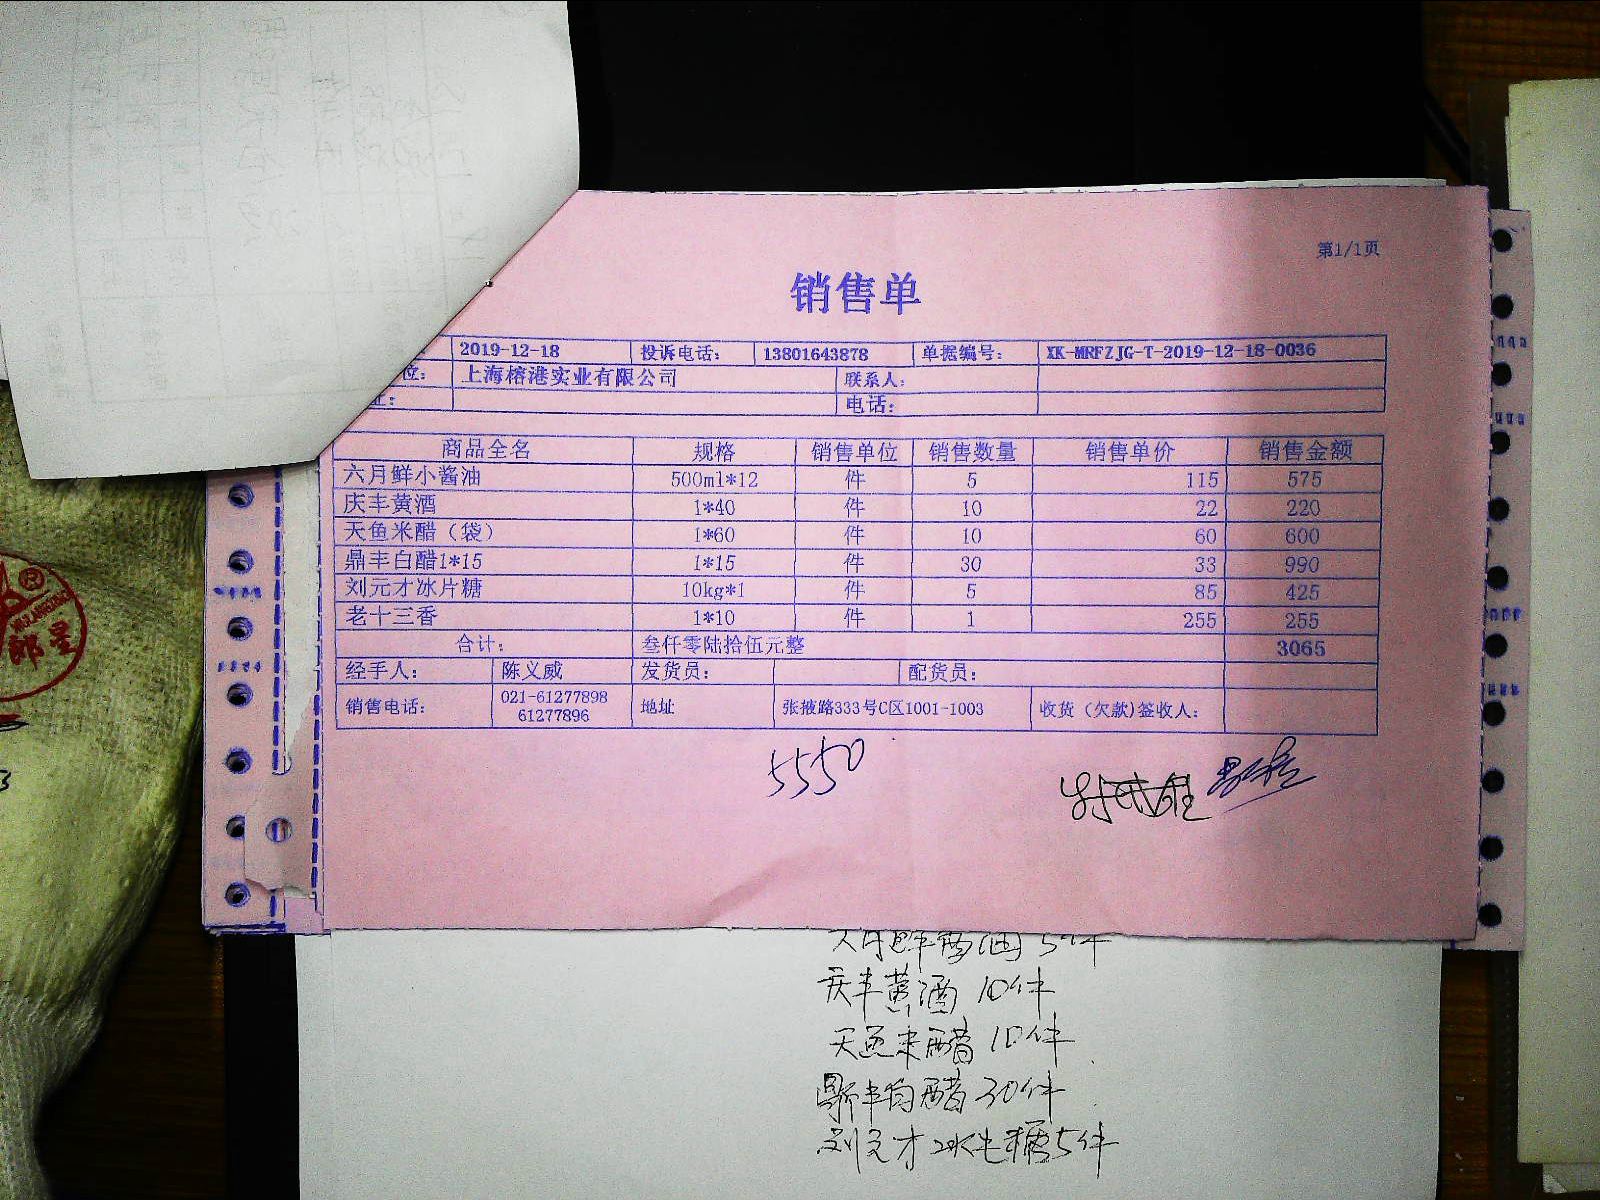 第1/1页
销售单
2019-12-18 投诉电话: 13801643878 单据编号: XK-MRFZJG-T-2019-12-18-0036
位: 上海榕港实业有限公司 联系人:
址: 电话:
商品全名 规格 销售单位 销售数量 销售单价 销售金额
六月鲜小酱油 500ml*12 件 5 115 575
庆丰黄酒 1*40 件 10 22 220
天鱼米醋（袋） 1*60 件 10 60 600
鼎丰白醋1*15 1*15 件 30 33 990
刘元才冰片糖 10kg*1 件 5 85 425
老十三香 1*10 件 1 255 255
合计: 叁仟零陆拾伍元整 3065
经手人: 陈义威 发货员: 配货员:
销售电话: 021-61277898 61277896 地址 张掖路333号C区1001-1003 收货（欠款)签收人:
5550
六月鲜酱油 5件
庆丰黄酒 10件
天鱼米醋 10件
鼎丰白醋 30件
刘元才冰片糖5件